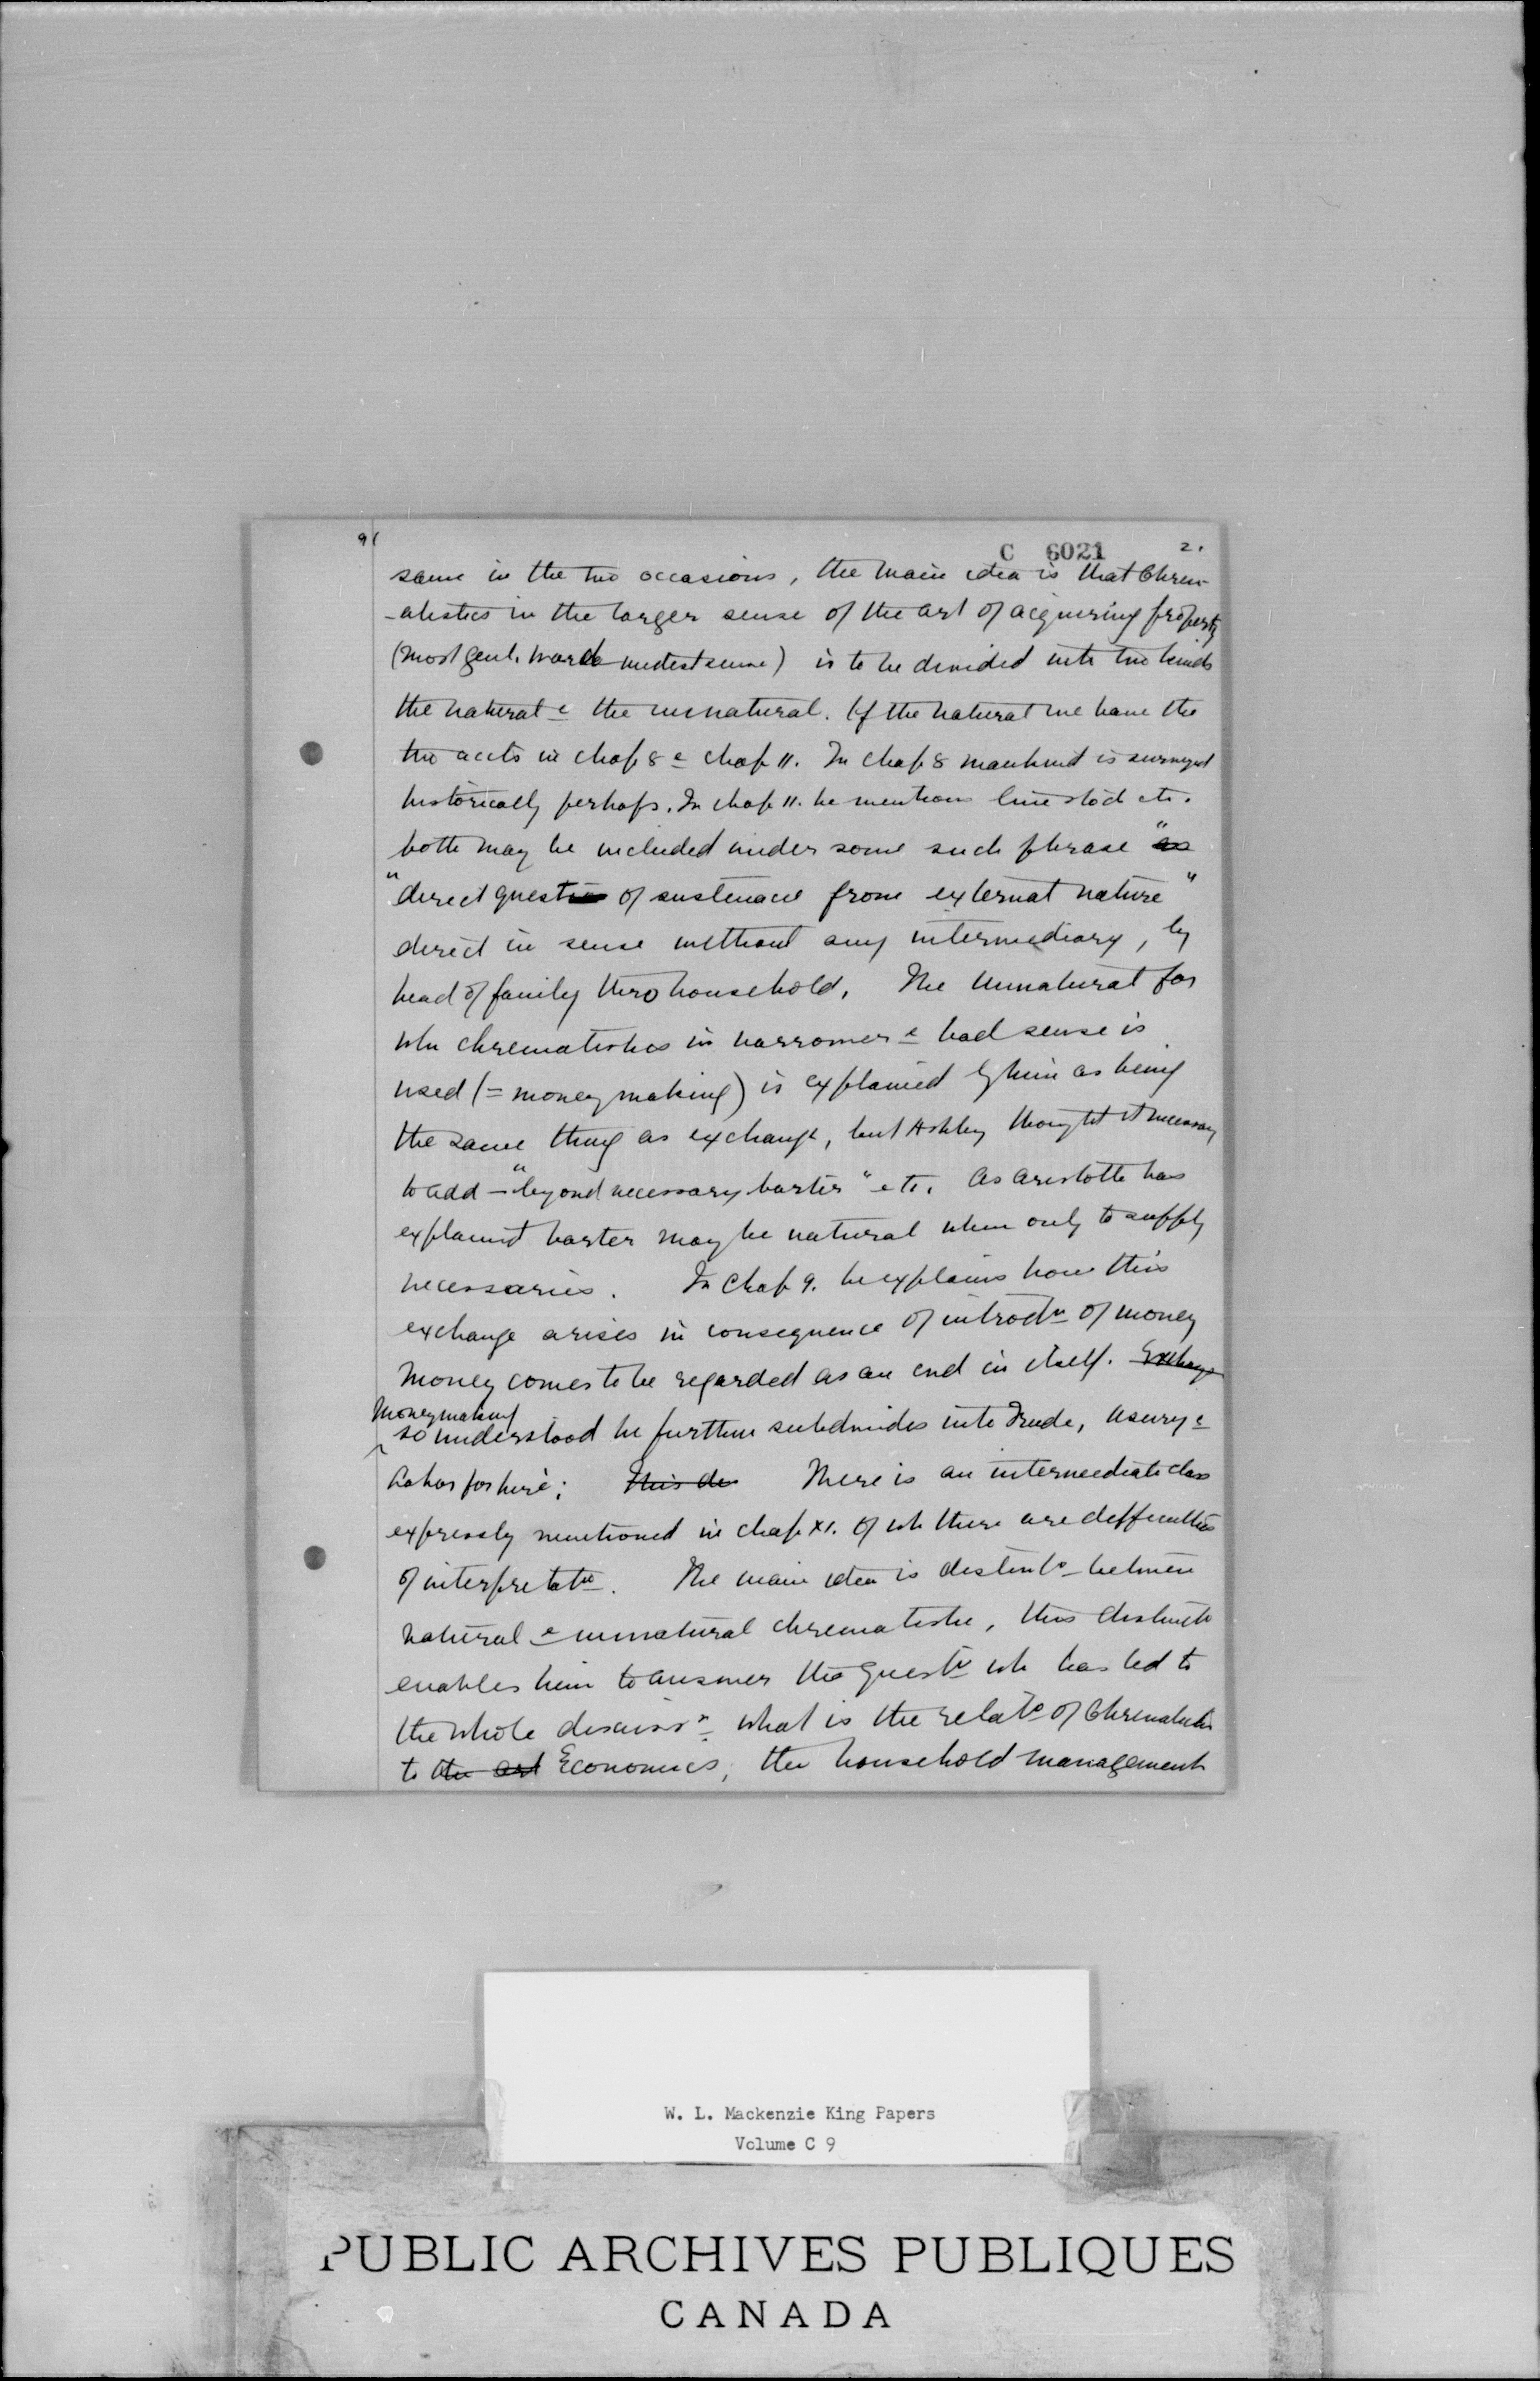 91
C 6021 2.
same in the two occasions, the main idea is that Chrem-
-atistics in the larger sense of the art of acquiring property
(most genl. word widest sense) is to be divided into two kinds
the natural & the unnatural. Of the natural we have the
two accts in chap 8 & chap 11. In chap 8 mankind is surveyed
historically perhaps. In chap 11. he mentions live stock etc.
both may be included under some such phrase " as
"direct quest of sustenance from external nature"
direct in sense without any intermediary, by
head of family thro household. The Unnatural for
wh chrematistics in narrower & bad sense is
used (= moneymaking) is explained by him as being
the same thing as exchange, but Ashley thought it necessary
to add – "beyond necessary barter" etc. As Aristotle has
explained barter may be natural when only to supply
necessaries. In Chap 9. he explains how this
exchange arises in consequence of introdn of money
money comes to be regarded as an end in itself. Exchange
Moneymaking
so understood he further subdivides into Trade, Usury &
Labor for hire; This de There is an intermediate class
expressly mentioned in chap XI. of wh there are difficulties
of interpretatn. The main idea is distinctn between
natural & unnatural chrematistic, this distinctn
enables him to answer the questn wh has led to
the whole discussn, what is the relatn of Chrematistics
to the art Economics, the household management
W. L. Mackenzie King Papers
Volume C 9
PUBLIC ARCHIVES PUBLIQUES
CANADA